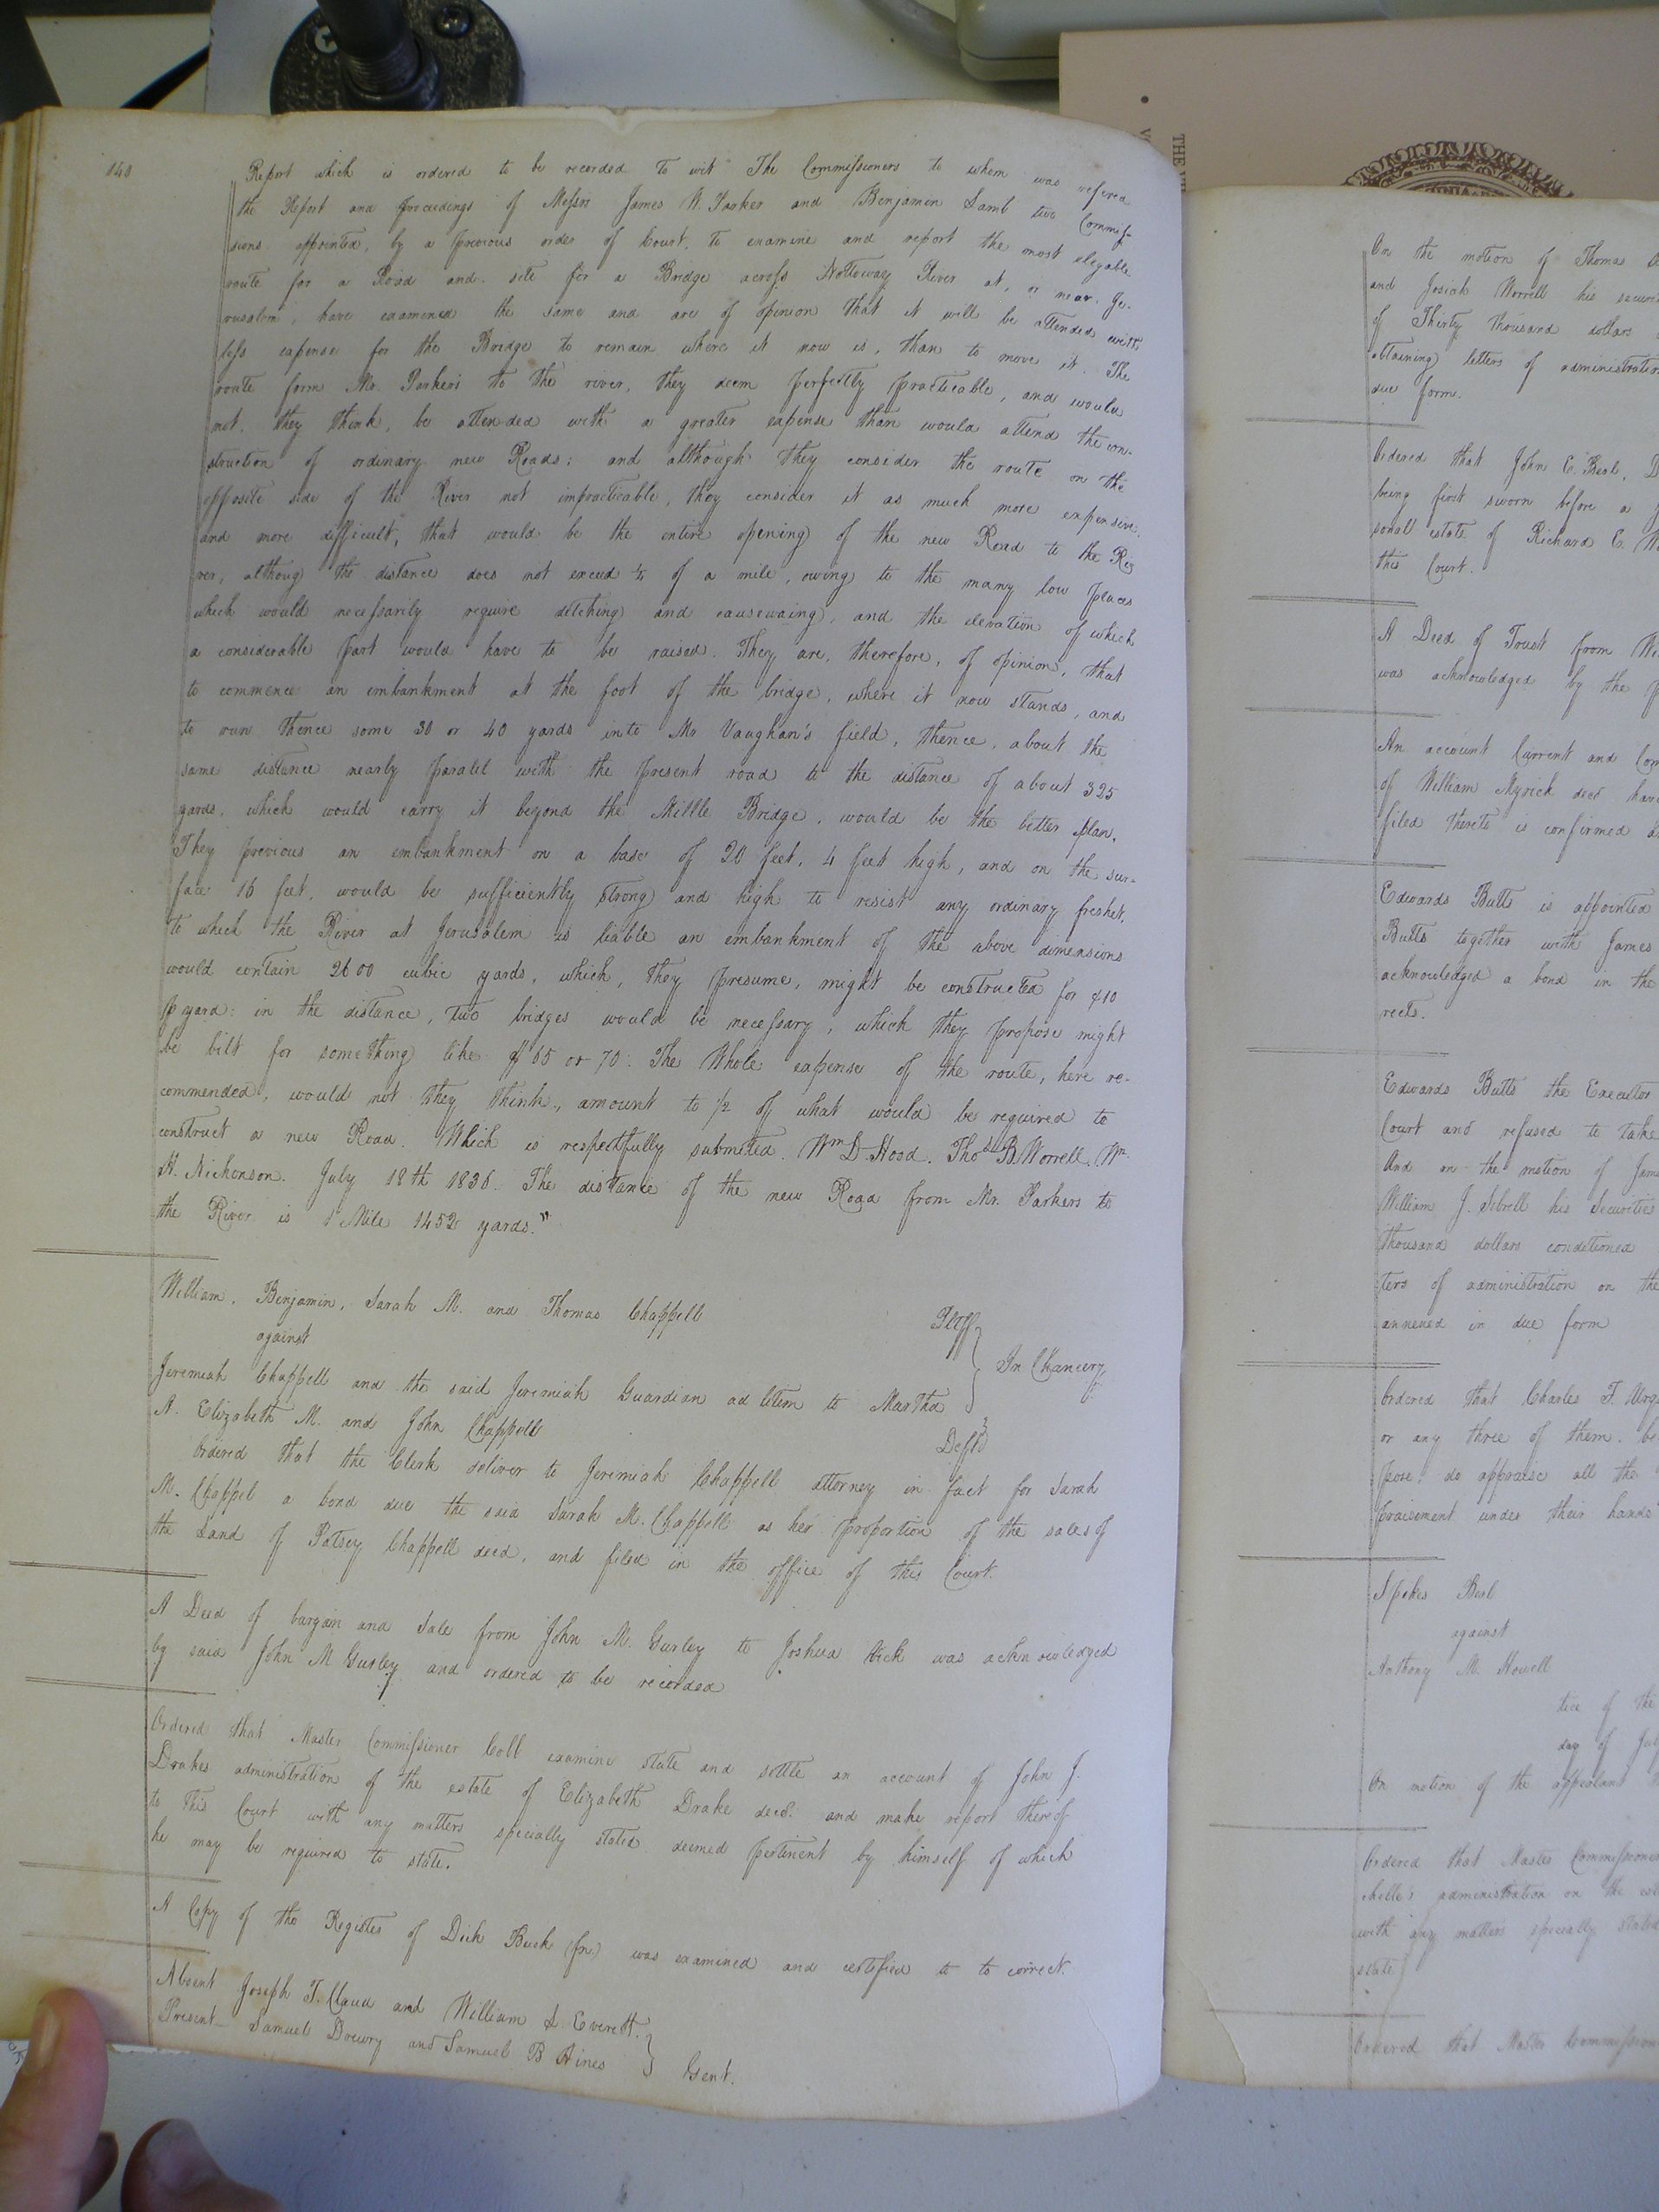 140
Report which is ordered to be recorded To wit "The Commissioners to whom was refered
the Report and proceedings of Messrs James W. Parker and Benjamin Lamb two Commis-
sions appointed, by a previous order of Court, to examine and report the most elegable
route for a Road and site for a Bridge across Nottoway River at, or near Je-
rusalem, have examined the same and are of opinion that it will be attended with
less expense for the Bridge to remain where it now is, than to move it. The
route form Mr. Parker's to the river, they deem perfectly practicable, and would
not, they think, be attended with a greater expense than would attend the con-
struction of ordinary new Roads; and although they consider the route on the
opposite side of the River not impracticable, they consider it as much more expensive
and more difficult, that would be the entire opening of the new Road to the Ri-
ver, althoug the distance does not exceed ¼ of a mile, owing to the many low places
which would necessarily require ditching and causewaing, and the elevation of which
a considerable part would have to be raised. They are, therefore, of opinion, that
to commence an embankment at the foot of the bridge, where it now stands, and
to run thence some 30 or 40 yards into Mr Vaughan's field, thence, about the
same distance nearly paralel with the present road to the distance of about 325
yards, which would carry it beyond the Millle Bridge, would be the better plan.
They previous an embankment on a base of 20 feet, 4 feet high, and on the sur-
face 16 feet, would be sufficiently strong and high to resist any ordinary freshet,
to which the River at Jerusalem is liable an embankment of the above dimensions
would contain 2600 cubic yards, which, they presume, might be constructed for ¢10
p yard: in the distance, two bridges would be necessary, which they propose might
be bilt for something like $65 or 70. The Whole expense of the route, here re-
commended, would not they think, amount to ½ of what would be required to
construct a new Road. Which is respectfully submited. Wm D Hood. Thos B. Worrell. Wm
H. Nickonson. July 18th 1836. The distance of the new Road from Mr. Parkers to
the River is 1 Mile 1452 yards."
William, Benjamin, Sarah M. and Thomas Chappell Pltff
against
In Chancery
Jeremiah Chappell and the said Jeremiah Guardian ad litem to Martha
A. Elizabeth M. and John Chappell Defts
Ordered that the Clerk deliver to Jeremiah Chappell attorney in fact for Sarah
M. Chappel a bond due the said Sarah M. Chappell as her proportion of the sales of
the Land of Patsey Chappell decd, and filed in the office of this Court.
A Deed of bargain and Sale from John M. Gurley to Joshua Hick was acknowledged
by said John M Gurley and ordered to be recorded
Ordered that Master Commissioner Cobb examine state and settle an account of John J.
Drakes administration of the estate of Elizabeth Drake decd. and make report thereof
to This Court with any matters specially stated deemed pertenent by himself of which
he may be required to state.
A Copy of the Register of Dick Buck (fn.) was examined and certified to to correct.
Absent Joseph T. Claud and William L Everett.
Present Samuel Drewry and Samuel B Hines
Gent.
On the motion of Thomas
and Josiah Worrell his
of Thirty thousand dollars
obtaining letters of
due form.
Ordered that John C. Beal,
being first sworn before a
sonal estate of Richard C.
this Court.
A Deed of Trust from
was acknowledged by the
An account Current and
of William Myrick decd
filed thereto is confirmed
Edwards Butts is appointed
Butts together with James
acknowledged a bond in the
rects.
Edwards Butts the Executor
Court and refused to take
And on the motion of
William J. Sebrell his Securities
thousand dollars conditioned
ters of administration on the
annexed in due form
Ordered that Charles F.
or any three of them. be
pose do appraise all the
praisement under their hands
Spokes Beal
against
Anthony M. Howell
tice of the
day of
On motion of the appealant
Ordered that Master Commissioner
administration on the
with any matters specially stated
state
Ordered that Master Commissioner